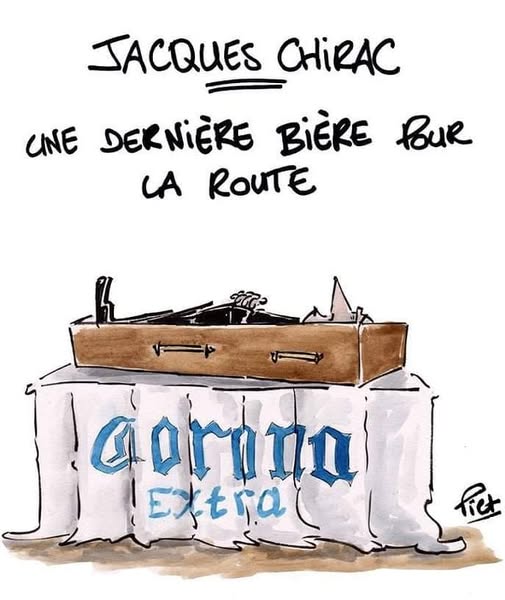 JACQUES CHIRAC
UNE DERNIÈRE BIÈRE POUR
LA ROUTE
Corona
Extra
Piet